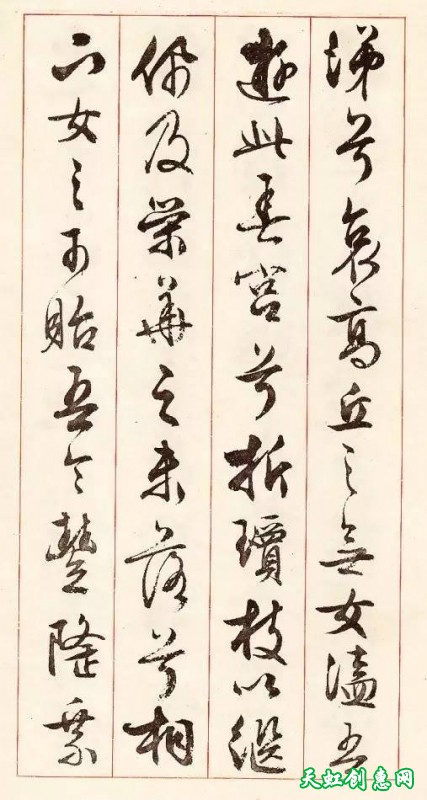 涕兮哀高丘之無女溘吾
遊此春宮兮折瓊枝以繼
佩及榮華之未落兮相
下女之可貽吾令豐隆乘
天虹创惠网